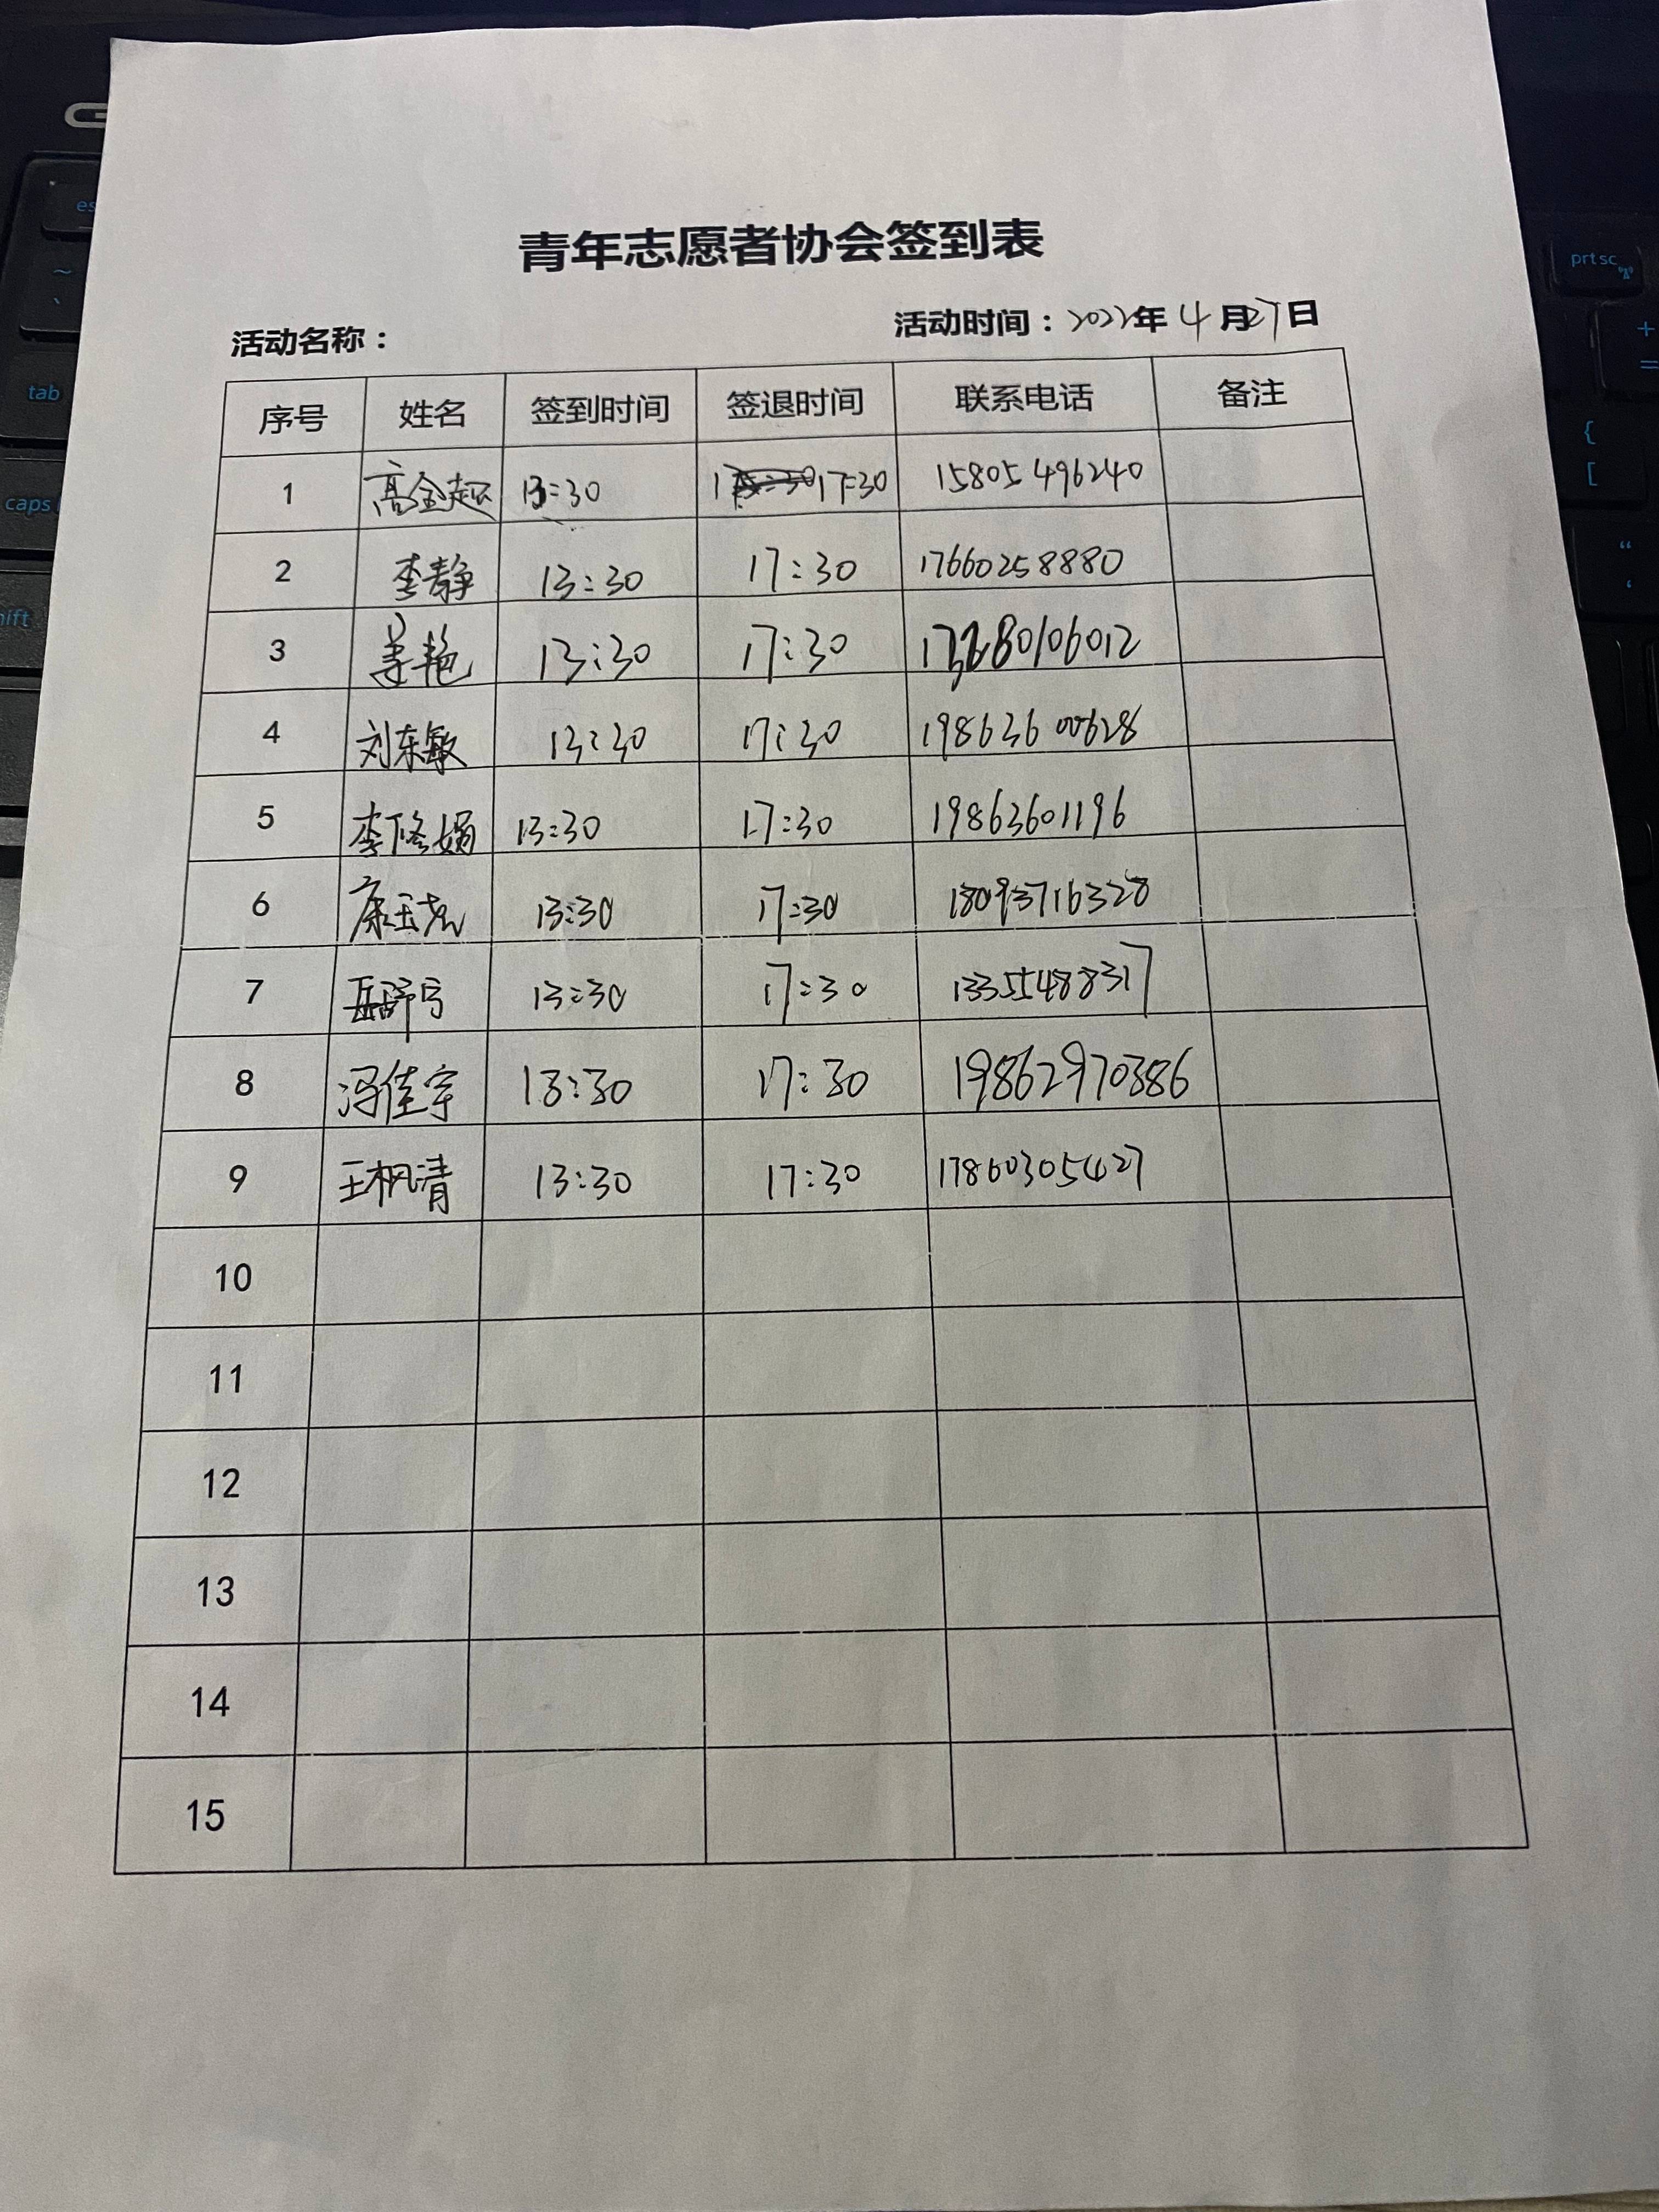 青年志愿者协会签到表
活动名称： 活动时间：2022年4月27日
序号 姓名 签到时间 签退时间 联系电话 备注
1 高金超 13:30 17:30 15805496240
2 李静 13:30 17:30 17660258880
3 姜艳 13:30 17:30
4 刘东敏 13:30 17:30 19863600628
5 李修娟 13:30 17:30 19863601196
6 13:30 17:30 18093716328
7 岳舒宁 13:30 17:30 13355488317
8 冯佳宇 13:30 17:30 19862970386
9 王枫清 13:30 17:30 17860305427
10
11
12
13
14
15